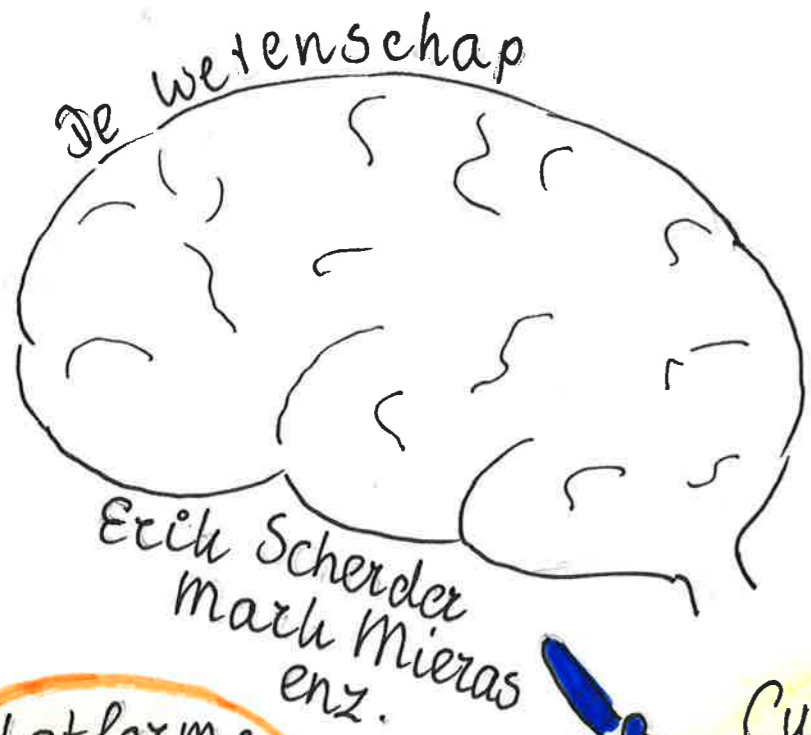 De wetenschap
Erik Scherder
Mark Mieras
enz.